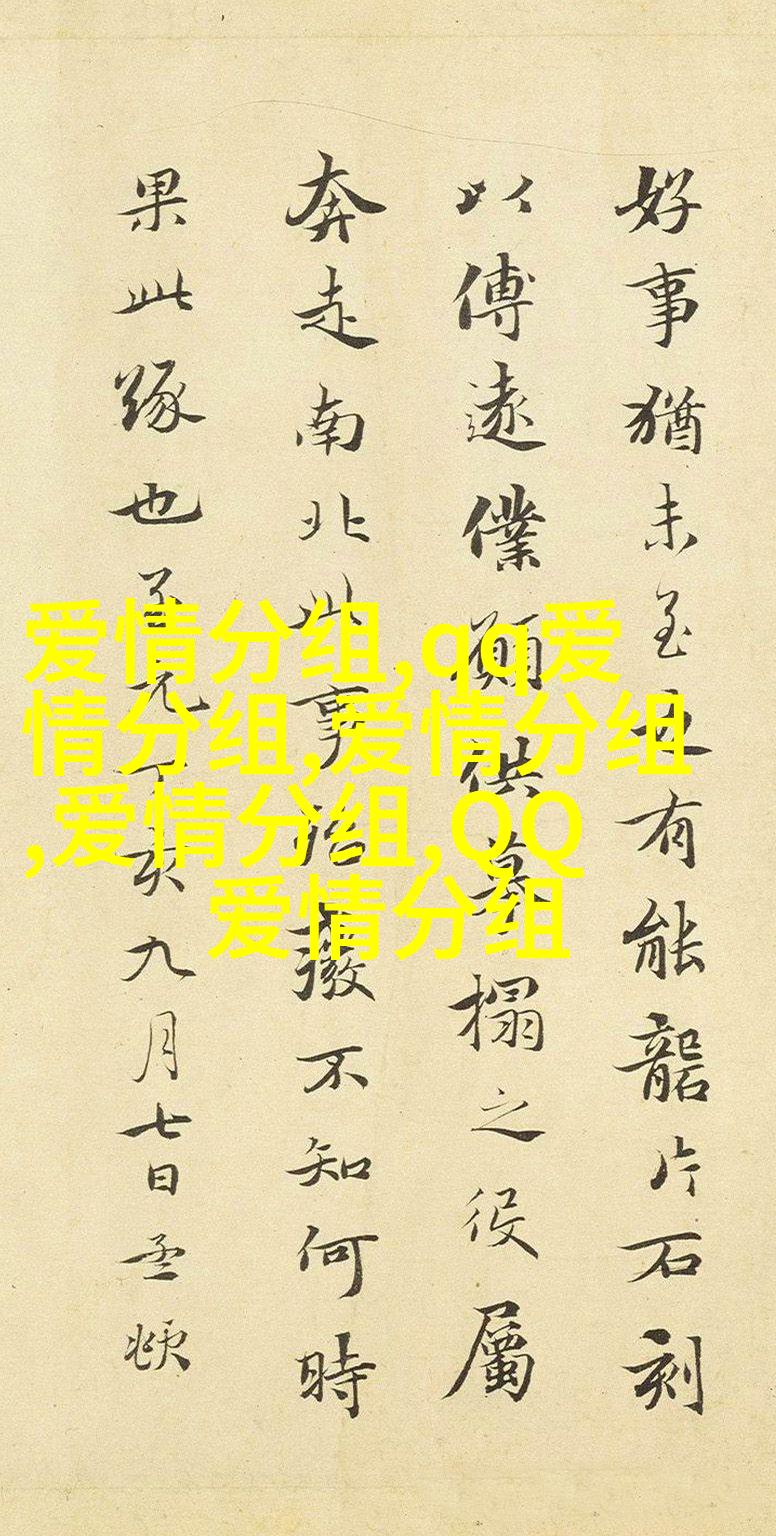 好事猶未至也有能礱片石刻
以傳遠僕願供摹搨之役屬
奔走南北此事殆廢不知何時
果此緣也至元丁亥九月七日孟頫
爱情分组,qq爱
情分组,爱情分组
,爱情分组,QQ
爱情分组